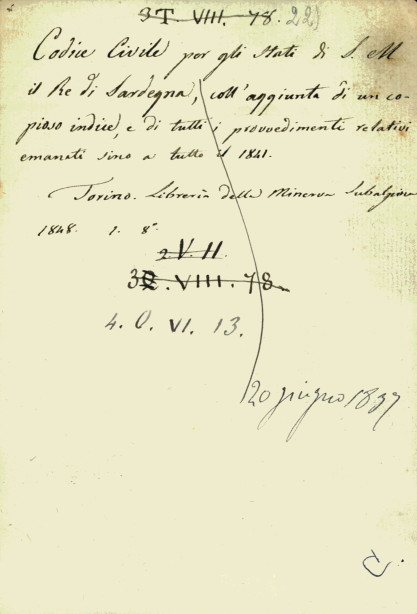 3T. VIII. 78. 22)
Codice Civile per gli Stati di S. M
il Re di Sardegna, coll'aggiunta di un co-
pioso indice, e di tutti i provvedimenti relativi
emanati sino a tutto il 1841.
Torino. Libreria della Minerva Subalpina
1848. 1. 8°.
2. V. 11
3Q. VIII. 78
4. O. VI. 13.
20 giugno 1837